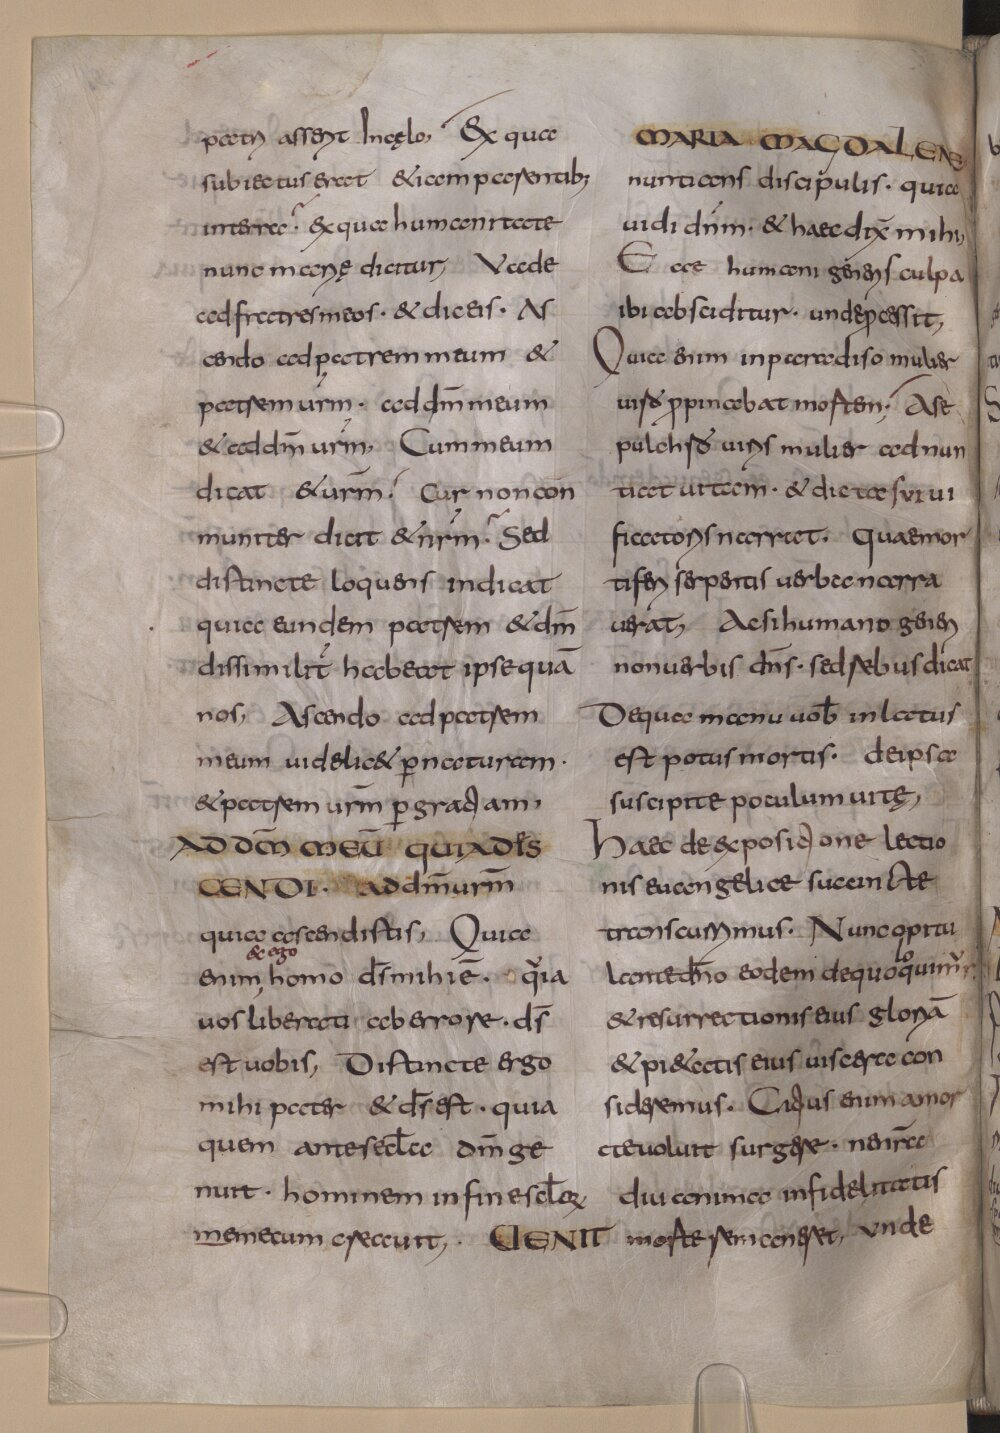 patris assent in cęlo, Ex qua
subiectus erat & iam parentib;
in terra? ex qua humanitate
nunc manę dicitur, Vade
ad fratres meos. & dic eis. As
cendo ad patrem meum &
patrem urm̄. ad dm̄ meum
& ad dm̄ urm̄. Cum meum
dicat & urm̄? Cur non con
muniter dicit & nrm̄? Sed
distincte loquens indicat
quia eundem patrem & dm̄
dissimilit̄ habeat ipse quā
nos, Ascendo ad patrem
meum uidelic& p̱ naturam.
& patrem urm̄ p̱ gratiam,
AD Dm̄ MEŪ QUIA Dēs
CENDI. AD dm̄ urm̄
quia ascendistis, Quia
& ego
enim, homo d̄s mihi ē. quia
uos liberati ab errore. d̄s
est uobis, Distincte ergo
mihi pater & d̄s est. quia
quem ante secl̄a dm̄ ge
nuit. hominem in fine secl̄oꝝ
me mecum creauit,. UENIT
MARIA MAGDALENE
nuntians discipulis. quia
uidi dn̄m. & haec dix̄ mihi,
Ecce humani generis culpa
ibi absciditur. unde p̱cessit,
Quia enim in paradiso mulier
uiro p̱pinabat mortem; A se
pulchro uiris mulier ad nun
tiat uitam. & dicta sui ui
ficatoris narrat. Quae mor
tiferi serpentis uerba narra
uerat, Ac si humano generi
non uerbis dn̄s. sed rebus dicat
De qua manu uob̄ inlatus
est potus mortis. de ipsa
suscipite poculum uitę,
Haec de expositione lectio
nis euangelice succincte
transcurrimus. Nunc opitu
lante dn̄o eodem de quo loquimur.
& resurrectionis eius gloriā
& pi&atis eius uiscera con
sideremus. Citius enim a mor
te uoluit surgere. ne nr̄a
diu anima in infidelitatis
morte remaneret, Vnde